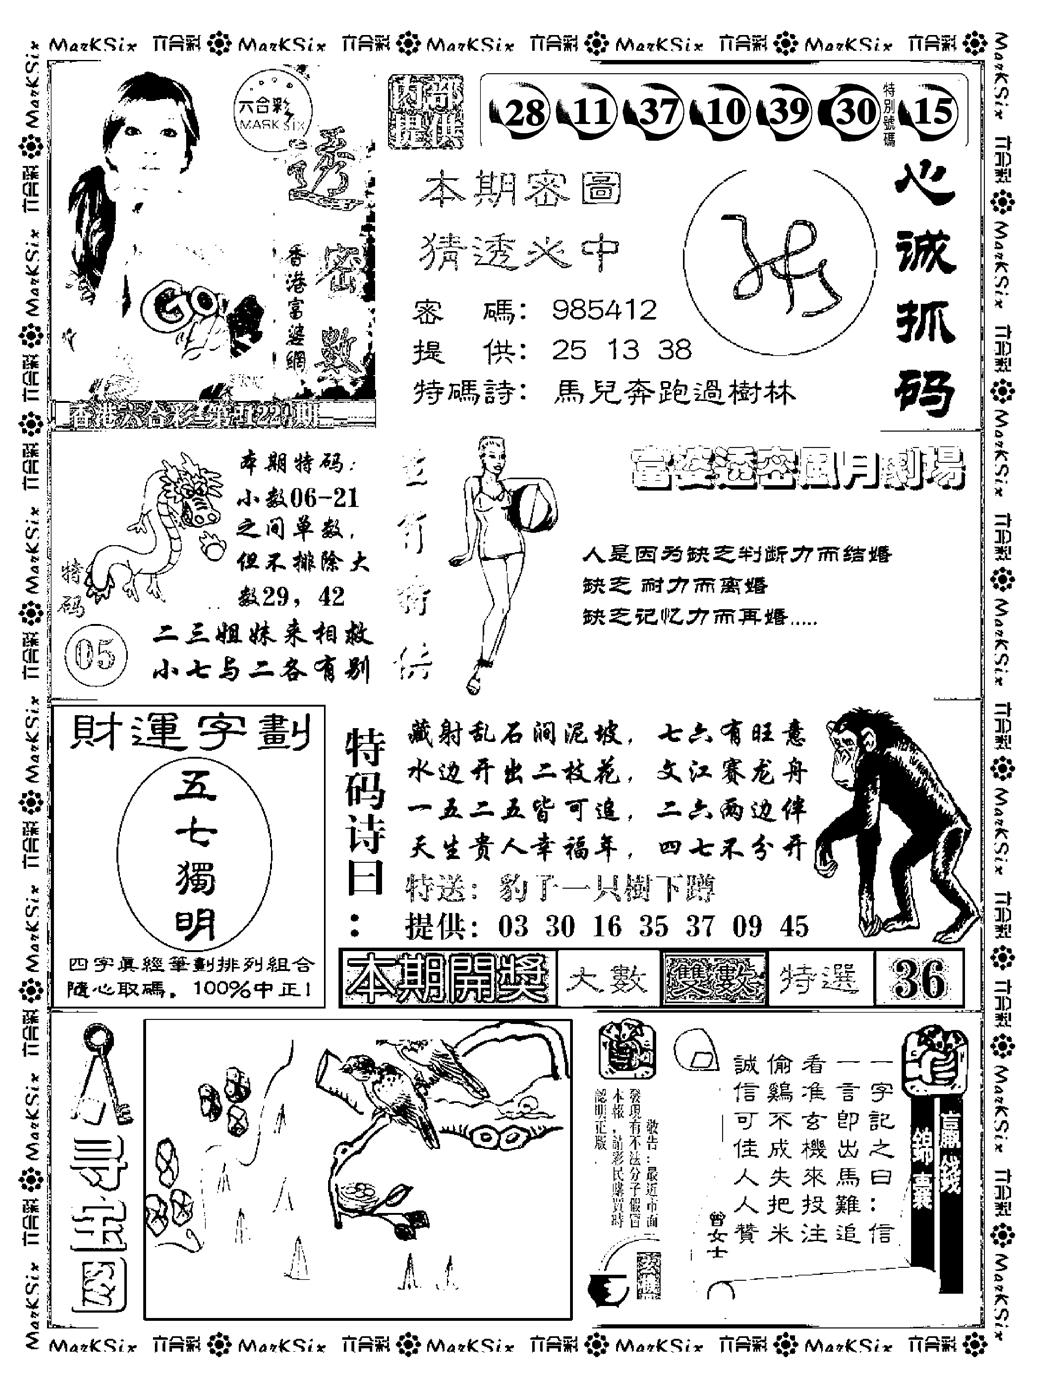 MarKSix 六合彩 MarKSix 六合彩 MarKSix 六合彩 MarKSix 六合彩 MarKSix 六合彩
六合彩
MARK SIX
透密數
香港富婆網
GO
香港六合彩
内部提供
28 11 37 10 39 30 特別號碼 15
本期密圖
猜透必中
密 碼： 985412
提 供： 25 13 38
特碼詩： 馬兒奔跑過樹林
心诚抓码
本期特码：
小数06-21
之间单数，
但不排除大
数29，42
特码
05
二三姐妹来相救
小七与二各有别
富婆透密風月劇場
人是因为缺乏判断力而结婚
缺乏 耐力而离婚
缺乏记忆力而再婚.....
財運字劃
五七獨明
四字真經筆劃排列組合
隨心取碼，100%中正！
特码诗曰：
藏射乱石涧泥坡，七六有旺意
水边开出二枝花，文江赛龙舟
一五二五皆可追，二六两边伴
天生贵人幸福年，四七不分开
特送：豹子一只樹下蹲
提供：03 30 16 35 37 09 45
本期開獎 大數 雙數 特選 36
寻宝图
敬告：最近市面
發現有不法分子假冒
本報，請彩民購買時
認明正版
玄機
贏錢
錦囊
一字記之曰：信
一言即出馬難追
看准玄機來投注
偷鷄不成失把米
誠信可佳人人贊
曾女士
MarKSix 六合彩 MarKSix 六合彩 MarKSix 六合彩 MarKSix 六合彩 MarKSix 六合彩